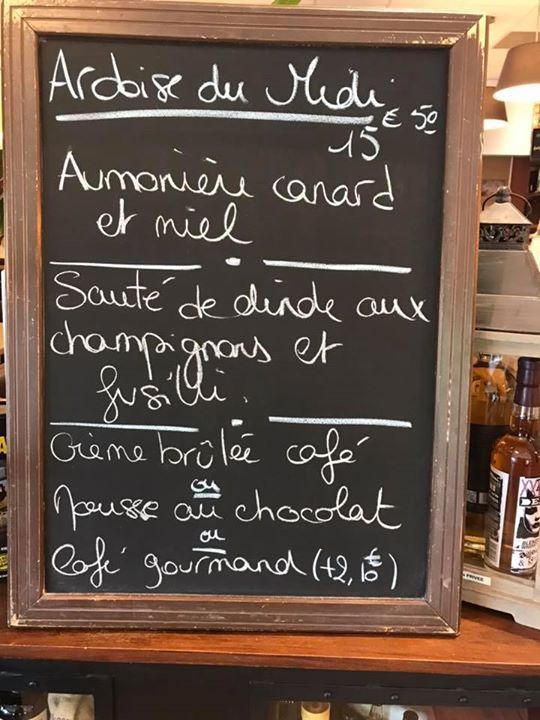 Ardoise du Midi
15€50
Aumonière canard
et miel
Sauté de dinde aux
champignons et
fusilli.
Crème brûlée café
ou
Mousse au chocolat
ou
Café gourmand (+2,10€)
PRIVÉE